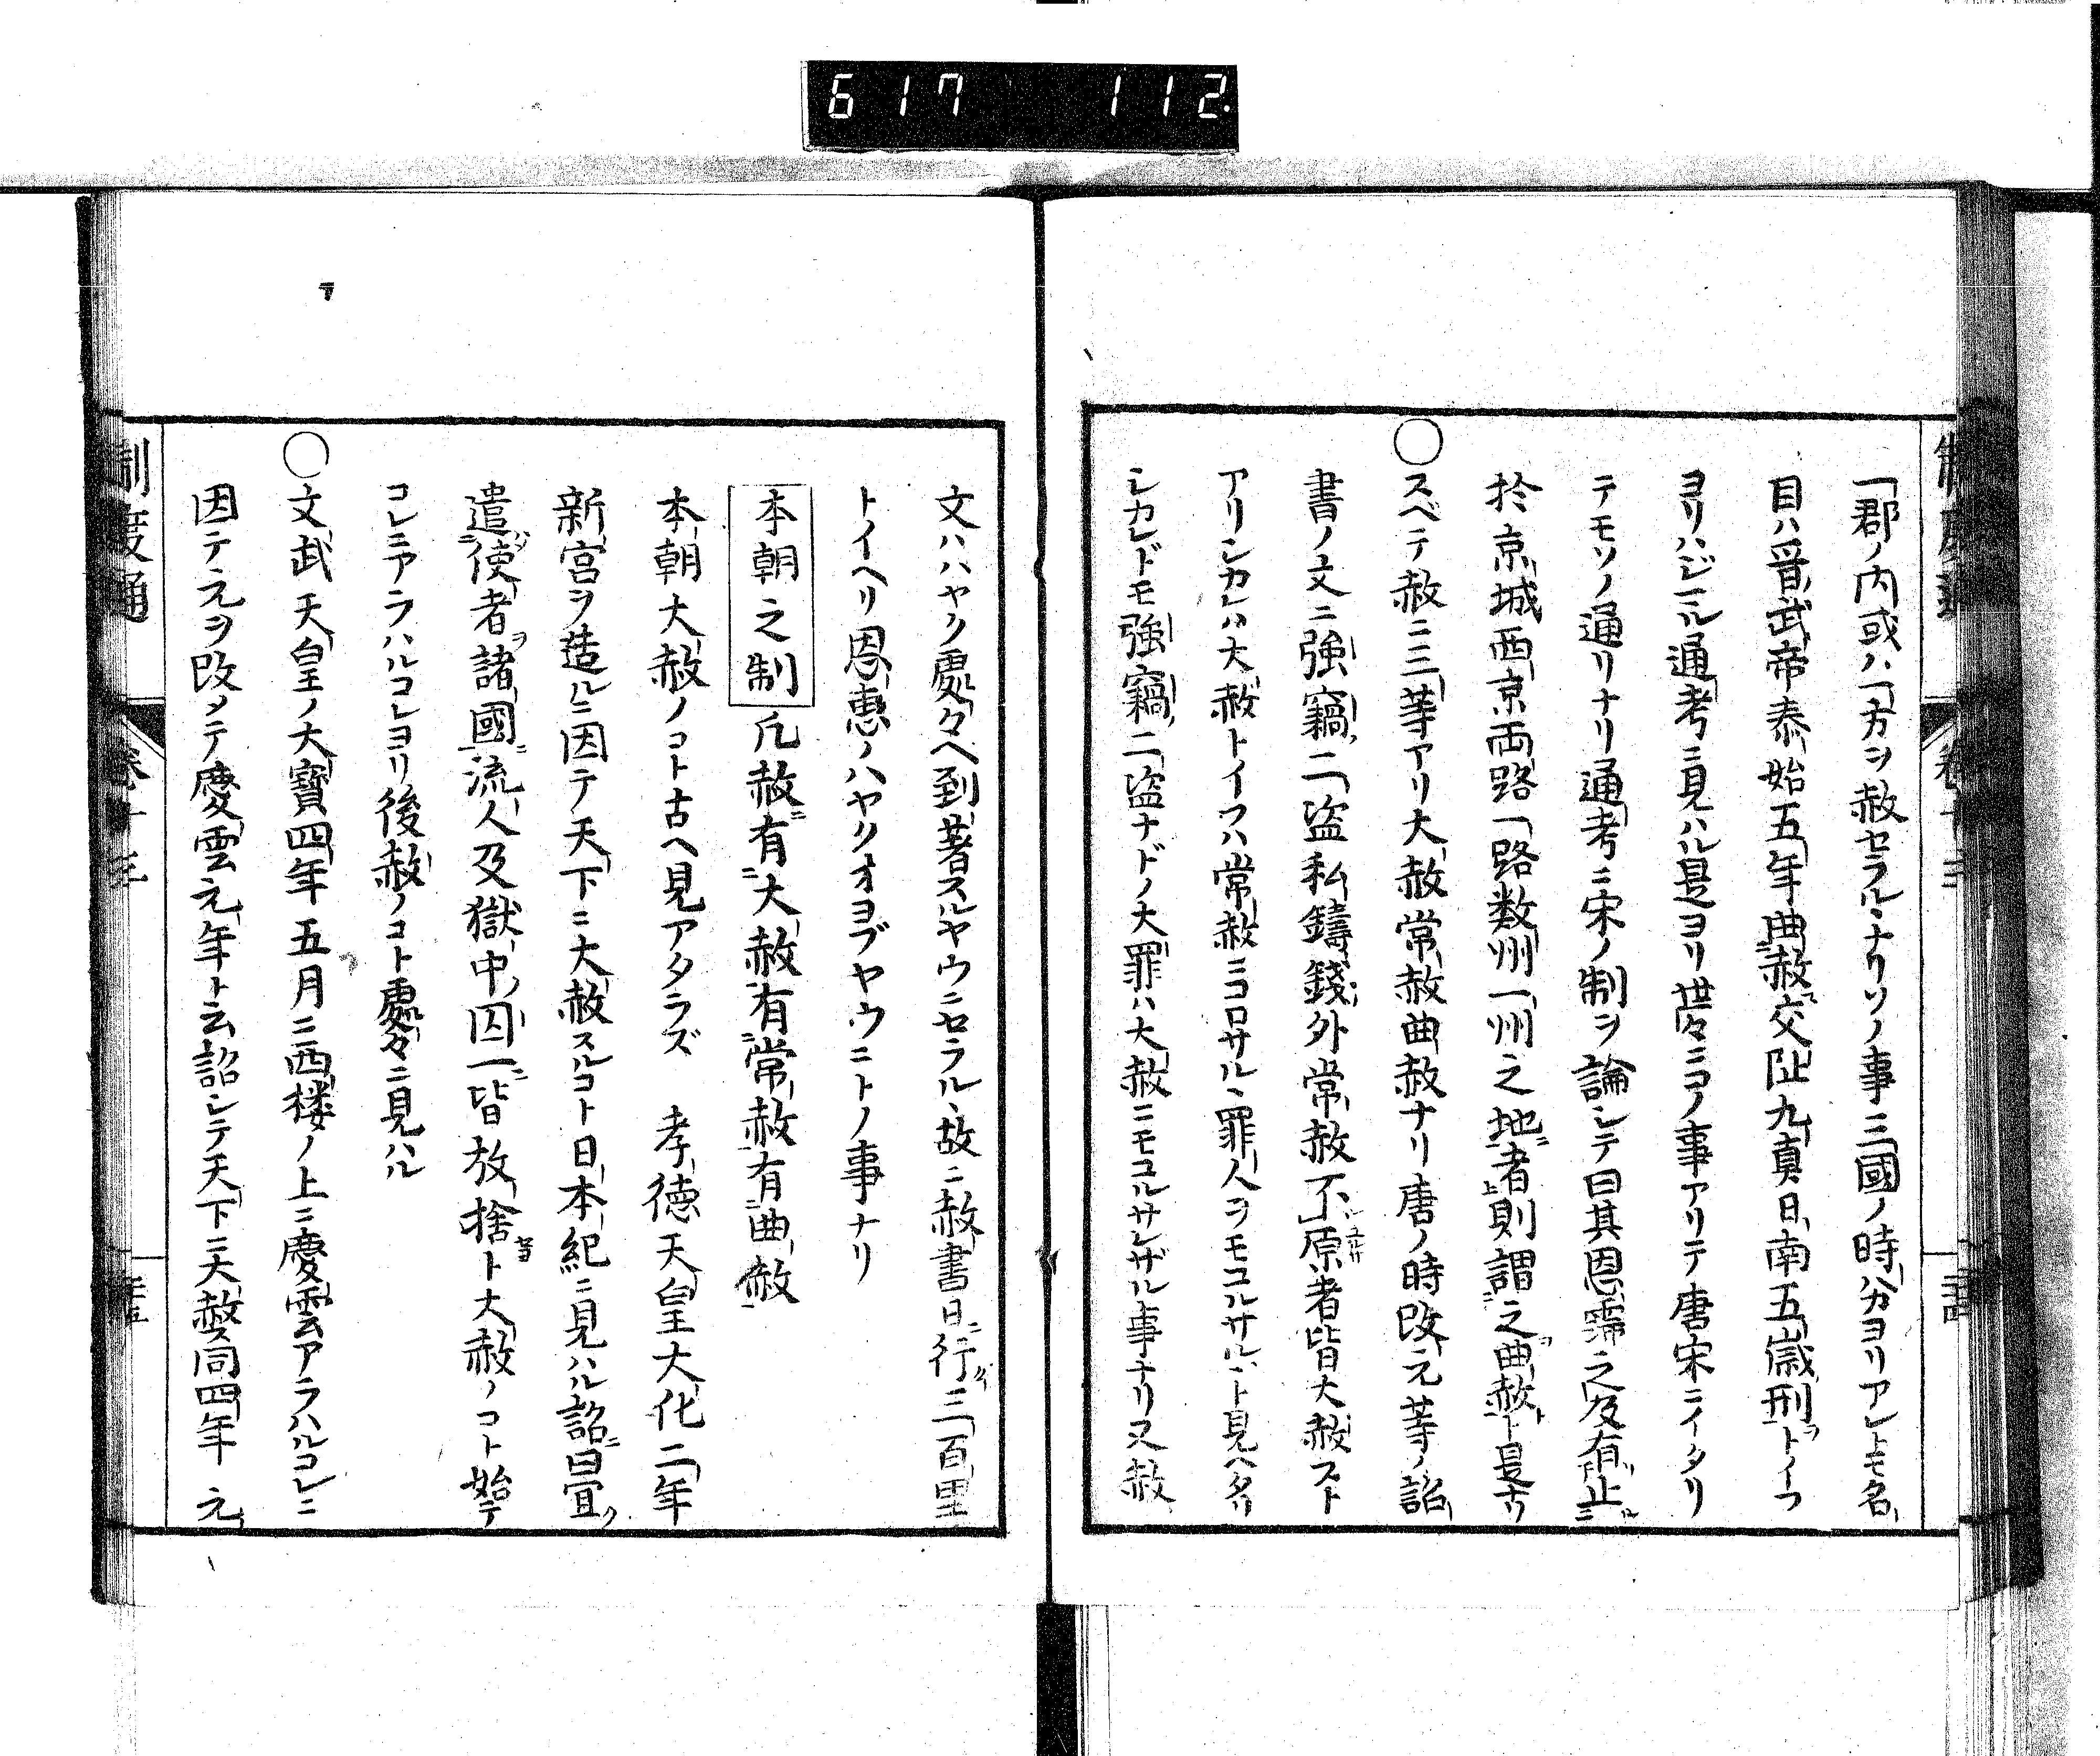 617 112
一郡ノ内或ハ一方ヲ赦セラルヽナリソノ事三國ノ時分ヨリアレトモ名
目ハ晉武帝泰始五年曲赦交趾九真日南五歳刑トイフ
ヨリハジマル通考ニ見ハル是ヨリ世々ニコノ事アリテ唐宋ニイタリ
テモソノ通リナリ通考ニ宋ノ制ヲ論シテ曰其恩霈之及有止
於京城西京両路一路数州一州之地者則謂之曲赦ト是ナリ
○スベテ赦ニ三等アリ大赦常赦曲赦ナリ唐ノ時改元等ノ詔
書ノ文ニ強竊二盗私鑄錢外常赦不原者皆大赦スト
アリシカレハ大赦トイフハ常赦ニユルサルヽ罪人ヲモユルサルヽト見ヘタリ
シカレドモ強竊二盗ナドノ大罪ハ大赦ニモユルサレザル事ナリ又赦
文ハハヤク處々ヘ到著スルヤウニセラルヽ故ニ赦書日行三百里
トイヘリ恩惠ノハヤクオヨブヤウニトノ事ナリ
本朝之制 凡赦有大赦有常赦有曲赦
本朝大赦ノコト古ヘ見アタラズ 孝徳天皇大化二年
新宮ヲ造ルニ因テ天下ニ大赦スルコト日本紀ニ見ハル詔曰宜
遣使者諸國流人及獄中囚一皆放捨ト大赦ノコト始テ
コレニアラハルコレヨリ後赦ノコト處々ニ見ハル
○文武天皇ノ大寶四年五月ニ西楼ノ上ニ慶雲アラハルコレニ
因テ元ヲ改メテ慶雲元年ト云詔シテ天下ニ大赦ス同四年 元
制度通 卷十三